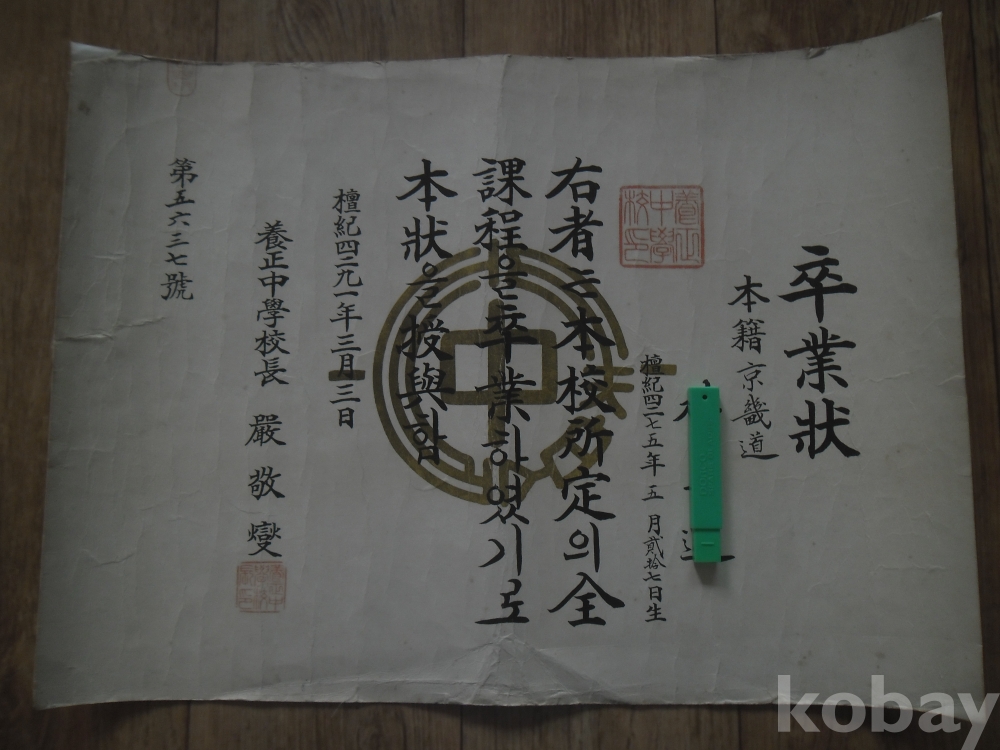 卒業狀
本籍 京畿道
檀紀四二七五年五月貳拾七日生
養正中學校印
右者는本校所定의全
課程을卒業하였기로
本狀을授與함
檀紀四二九一年三月三日
養正中學校長 嚴敬燮
第五六三七號
kobay